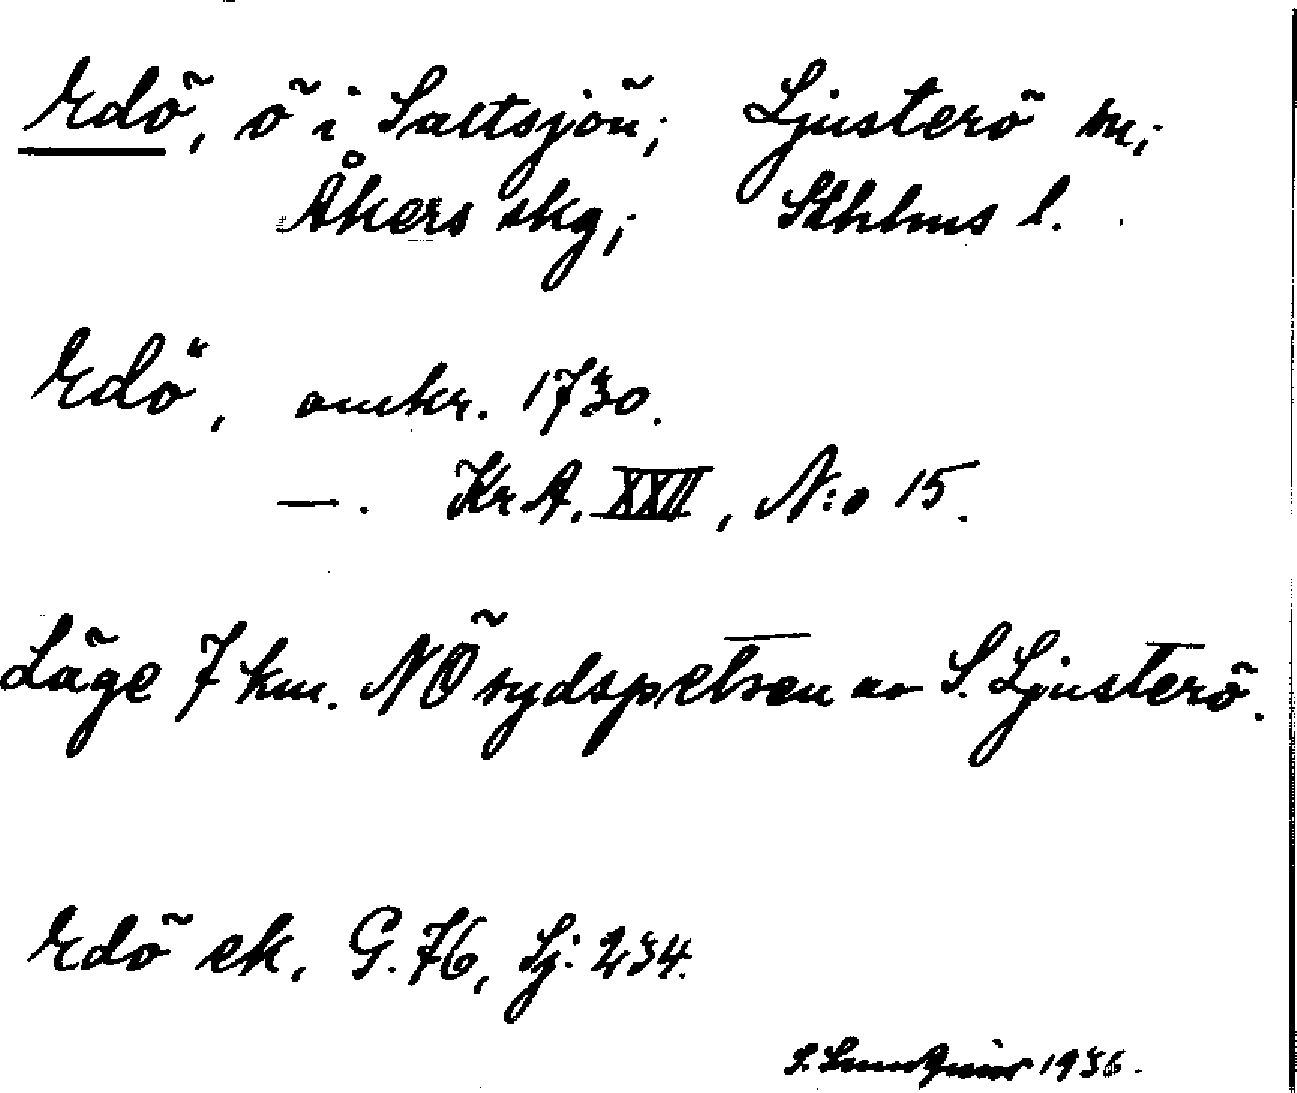 Edö, ö i Saltsjön; Ljusterö sn;
Åkers skg; Sthlms l.
Edö, omkr. 1730.
—. KrA. XXII, N:o 15.
Läge 7 km. NÖ sydspetsen av S. Ljusterö.
Edö ek. G. 76, Lj: 234.
S. 1936.